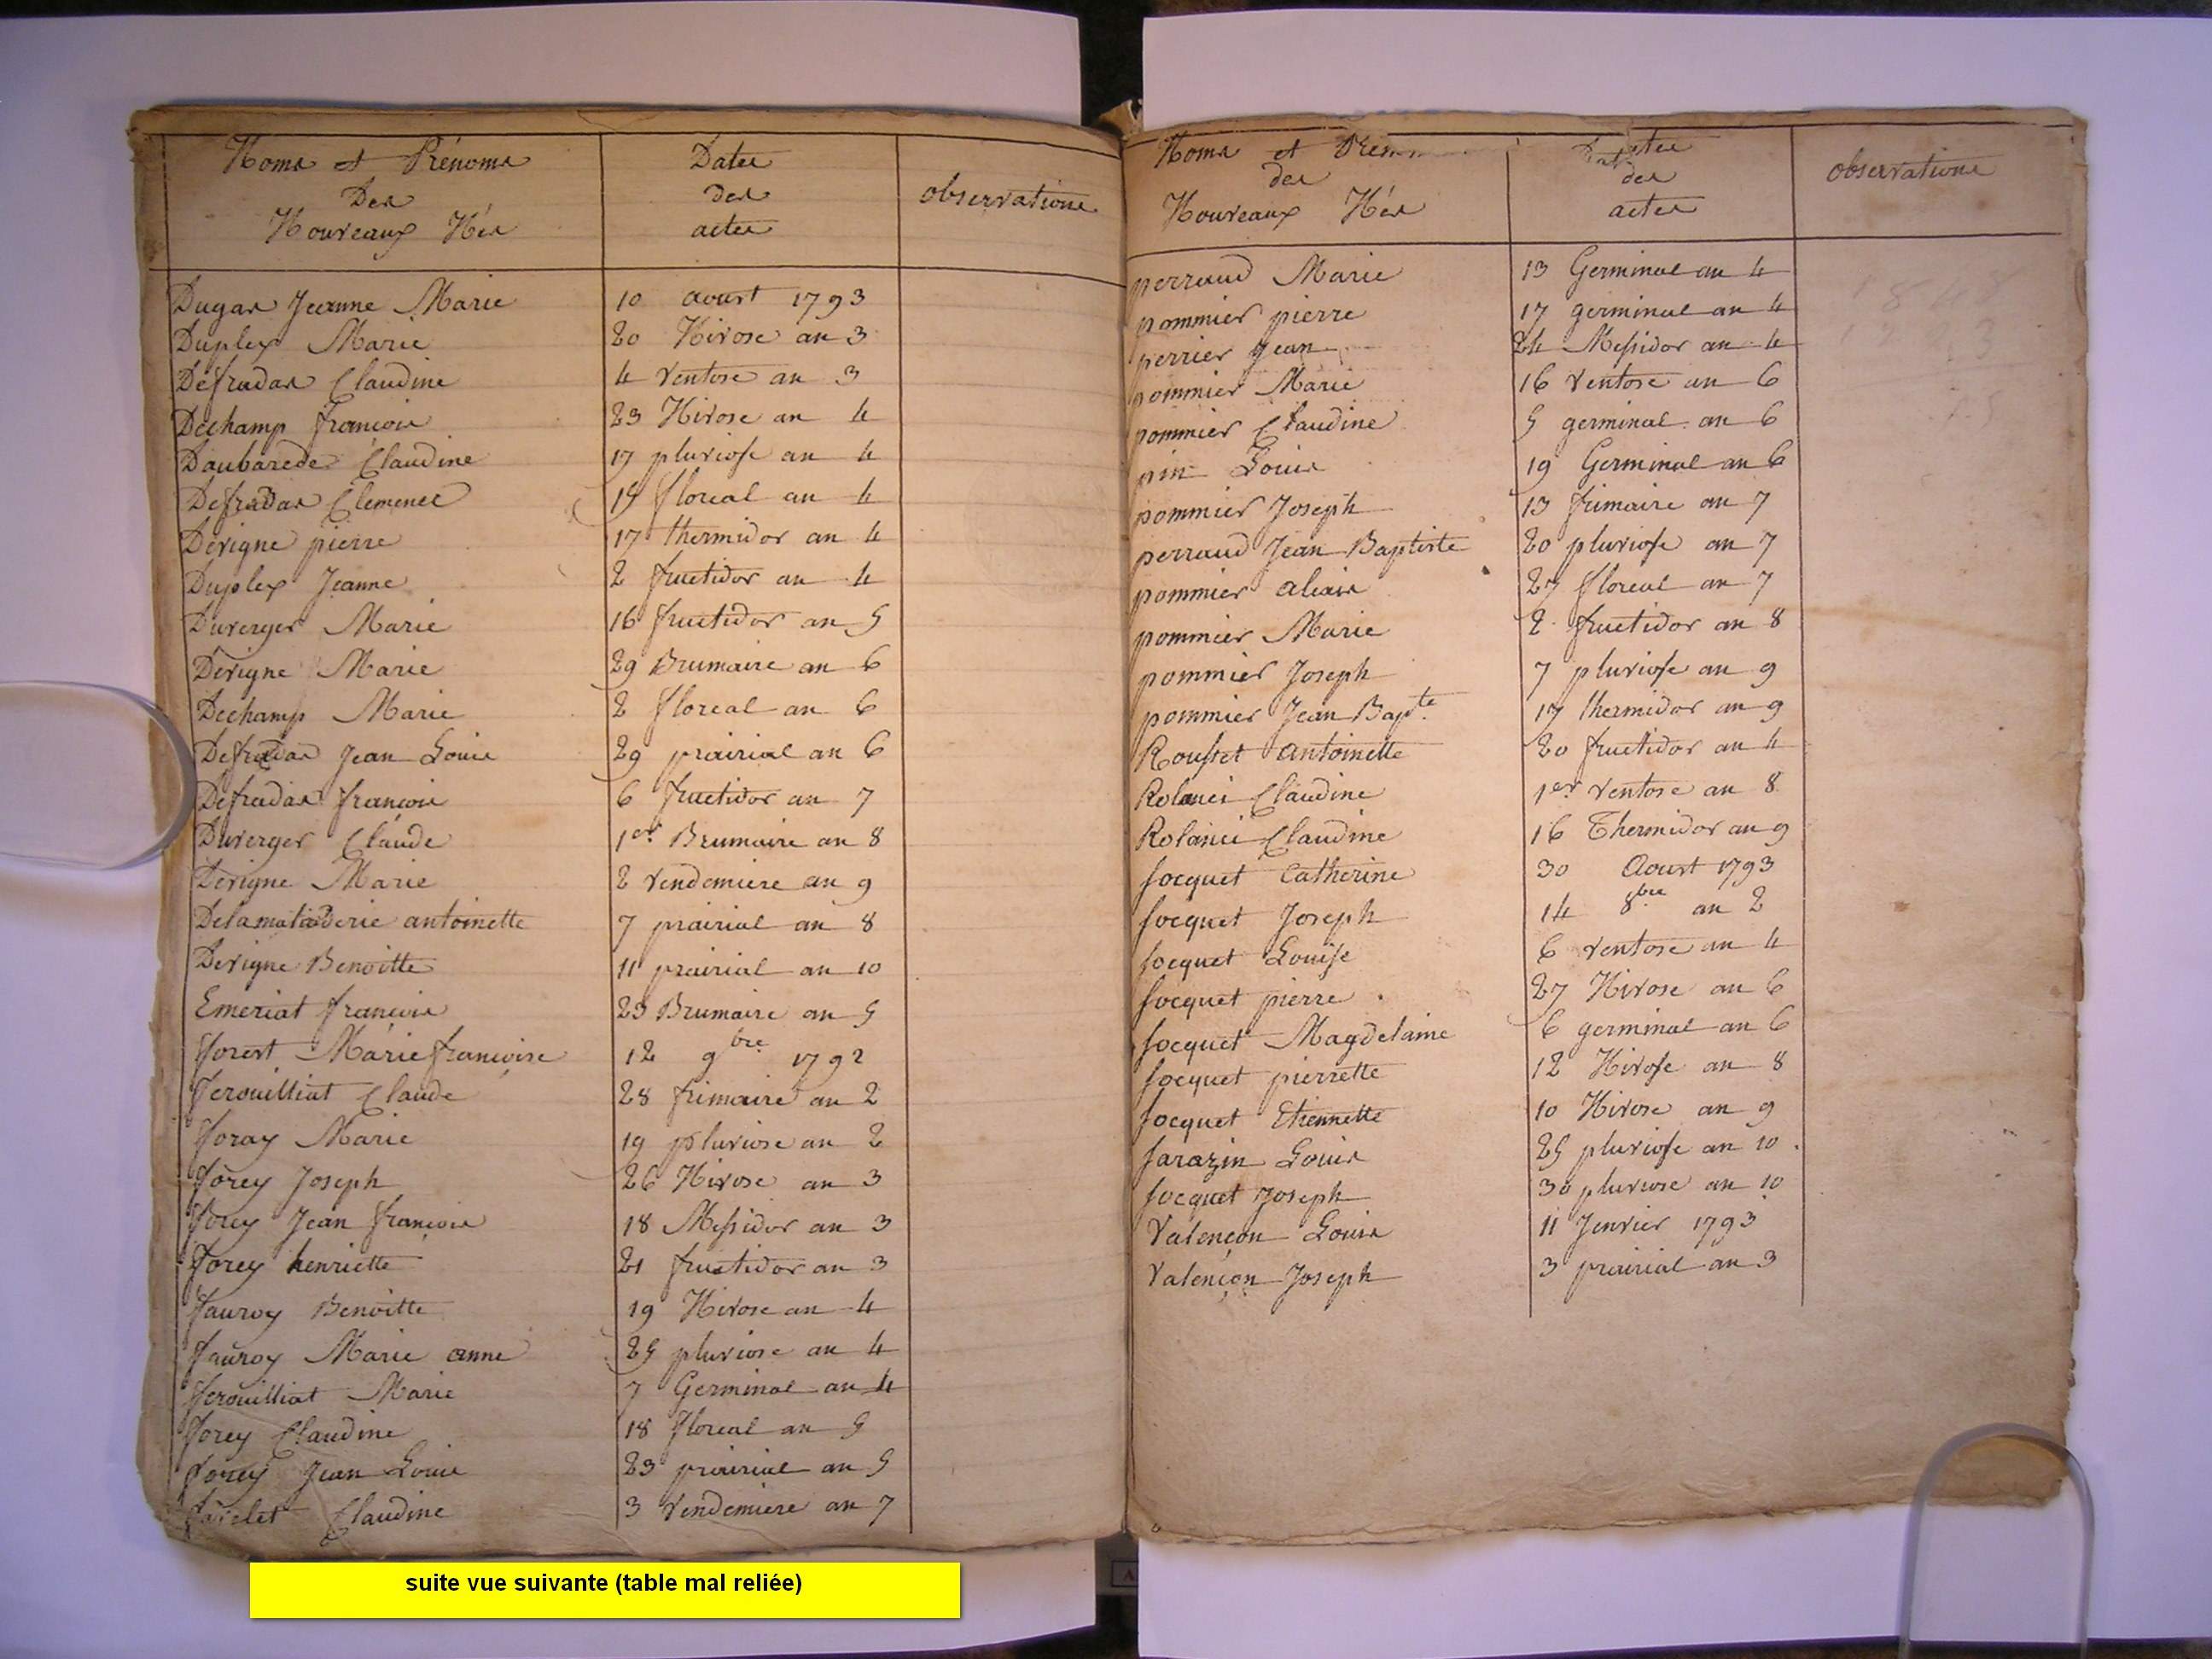 Noms et Prénoms
Des
Nouveaux Nés
Dates
des
actes
observations
Dugas Jeanne Marie 10 aoust 1793
Duplex Marie 20 Nivose an 3
Defradas Claudine 4 ventose an 3
Dechamp françois 23 Nivose an 4
Daubarede Claudine 17 pluviose an 4
Defradas Clemence 19 floreal an 4
Devigne pierre 17 thermidor an 4
Duplex Jeanne 2 fructidor an 4
Duverger Marie 16 fructidor an 5
Devigne Marie 29 Brumaire an 6
Dechamp Marie 2 floreal an 6
Defradas Jean Louis 29 prairial an 6
Defradas françois 6 fructidor an 7
Duverger Claude 1er Brumaire an 8
Devigne Marie 2 vendemiere an 9
antoinette 7 prairial an 8
Devigne Benoitte 11 prairial an 10
Emeriat françois 23 Brumaire an 5
forest Marie françoise 12 9bre 1792
ferouilliat Claude 28 frimaire an 2
foray Marie 19 pluviose an 2
forey Joseph 26 Nivose an 3
forey Jean françois 18 Messidor an 3
forey henriette 21 fructidor an 3
fauroy Benoitte 19 Nivose an 4
fauroy Marie anne 25 pluviose an 4
ferouilliat Marie 7 Germinal an 4
forey Claudine 18 floreal an 5
forey Jean Louis 23 prairial an 5
Claudine 3 vendemiere an 7
suite vue suivante (table mal reliée)
Noms et
des
Nouveaux Nés
Dates
des
actes
observations
perraud Marie 13 Germinal an 4
pommier pierre 17 germinal an 4
perrier Jean 24 Messidor an 4
pommier Marie 16 ventose an 6
pommier Claudine 5 germinal an 6
pin Louis 19 Germinal an 6
pommier Joseph 13 frimaire an 7
perraud Jean Baptiste 20 pluviose an 7
pommier aléxis 27 floreal an 7
pommier Marie 2 fructidor an 8
pommier Joseph 7 pluviose an 9
pommier Jean Bapte 17 thermidor an 9
Rousset antoinette 20 fructidor an 4
Rolanci Claudine 1er ventose an 8
Rolanci Claudine 16 Thermidor an 9
socquet Catherine 30 Aoust 1793
socquet Joseph 14 8bre an 2
socquet Louise 6 ventose an 4
socquet pierre 27 Nivose an 6
socquet Magdelaine 6 germinal an 6
socquet pierrette 12 Nivose an 8
socquet Etiennette 10 Nivose an 9
sarazin Louis 25 pluviose an 10
socquet Joseph 30 pluviose an 10
Valençon Louis 11 Jenvier 1793
Valençon Joseph 3 prairial an 3